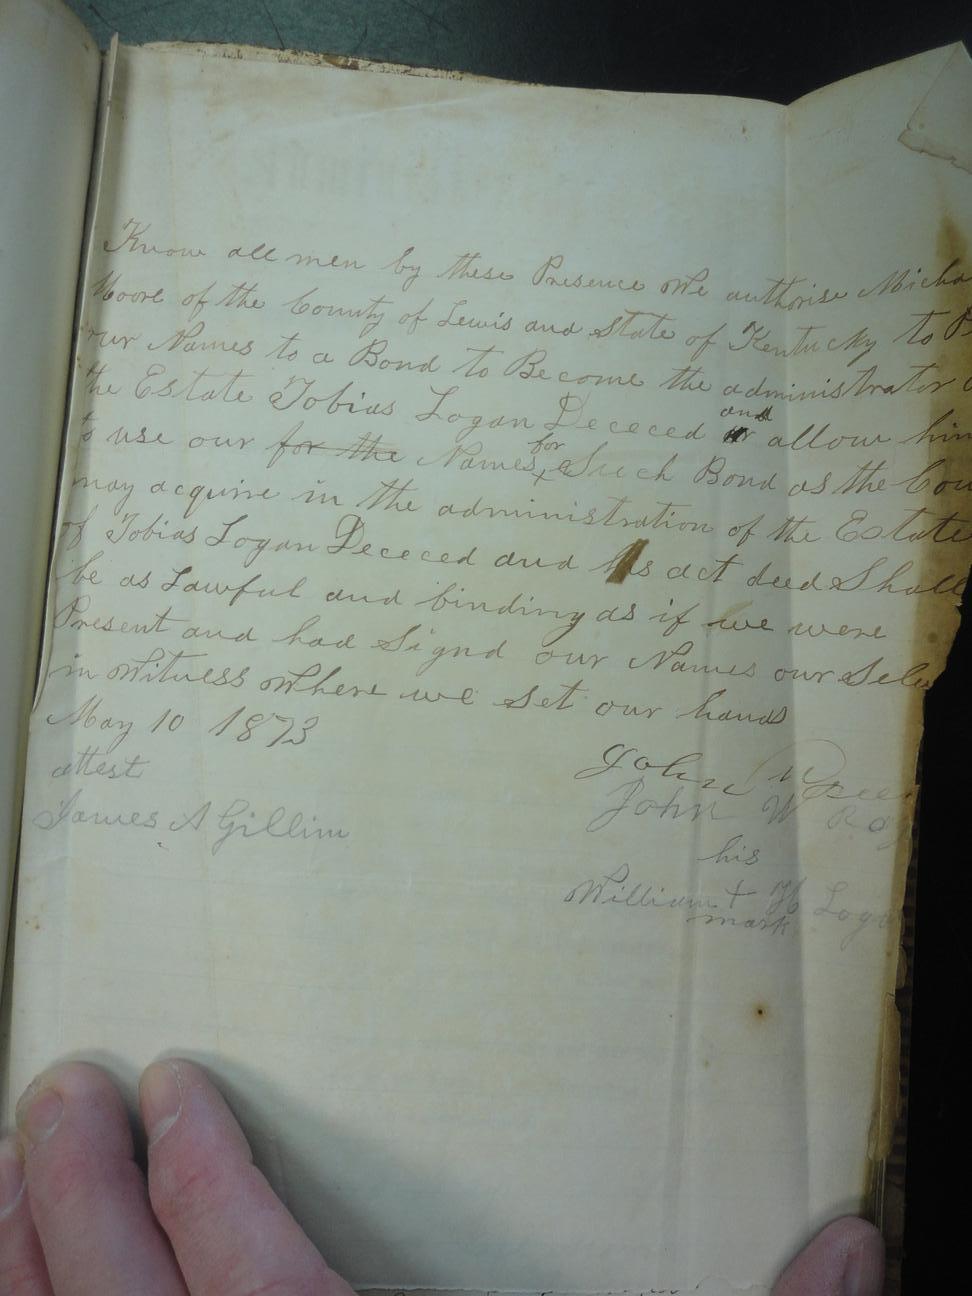 Know all men by these Presence We authorise Micha
Moore of the County of Lewis and State of Kentucky to
our Names to a Bond to Become the administrator
the Estate Tobias Logan Dececed and allow him
to use our for the Names for Such Bond as the Cou
may acquire in the administration of the Estate
of Tobias Logan Dececed and his act deed Shall
be as Lawful and binding as if we were
Present and had Signd our Names our Selv
in Witness Where we set our hands
May 10 1873
attest
John
John W
James A Gillim
his
William + H Logan
mark